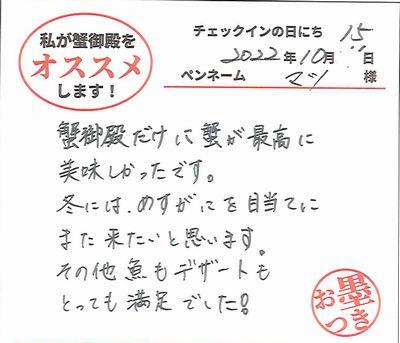 私が蟹御殿を
オススメ
します！
チェックインの日にち
2022年10月15日
ペンネーム マツ 様
蟹御殿だけに蟹が最高に
美味しかったです。
冬には、めすがにを目当てに
また来たいと思います。
その他魚もデザートも
とっても満足でした！
墨
おつき